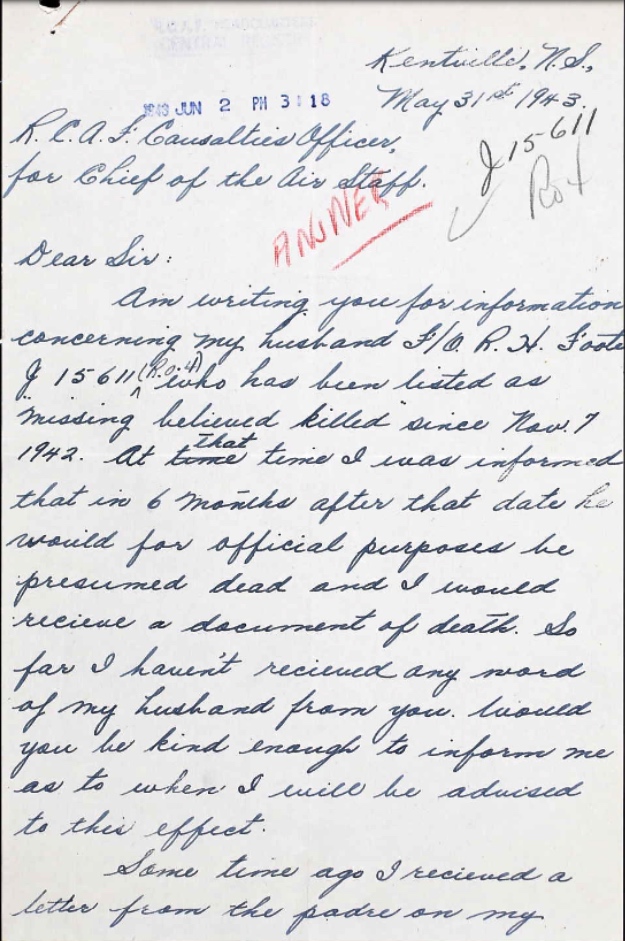 R.C.A.F. HEADQUARTERS
CENTRAL REGISTRY
Kentville, N.S.,
1943 JUN 2 PM 3:18
May 31st 1943.
R.C.A.F. Causalties Officer,
for Chief of the Air Staff.
J15611
ANSWER
Dear Sir:
Am writing you for information
concerning my husband F/O. R. H. Foote
J 15611 (R.o.4) who has been listed as
"missing believed killed" since Nov. 7
1942. At time that time I was informed
that in 6 months after that date he
would for official purposes be
presumed dead and I would
recieve a document of death. So
far I haven't recieved any word
of my husband from you. Would
you be kind enough to inform me
as to when I will be advised
to this effect.
Some time ago I recieved a
letter from the padre on my